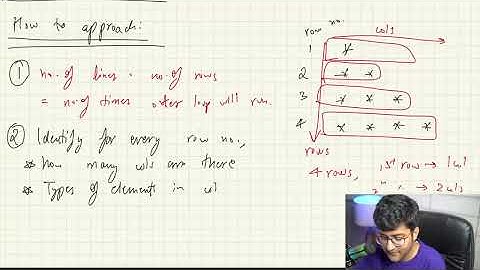 How to approach:
① no. of lines = no. of rows
= no. of times outer loop will run.
② Identify for every row no.,
** how many cols are there
** Types of elements in col
row no.
cols
1 *
2 * *
3 * * *
4 * * * *
rows
4 rows, 1st row → 1 col
→ 2 cols